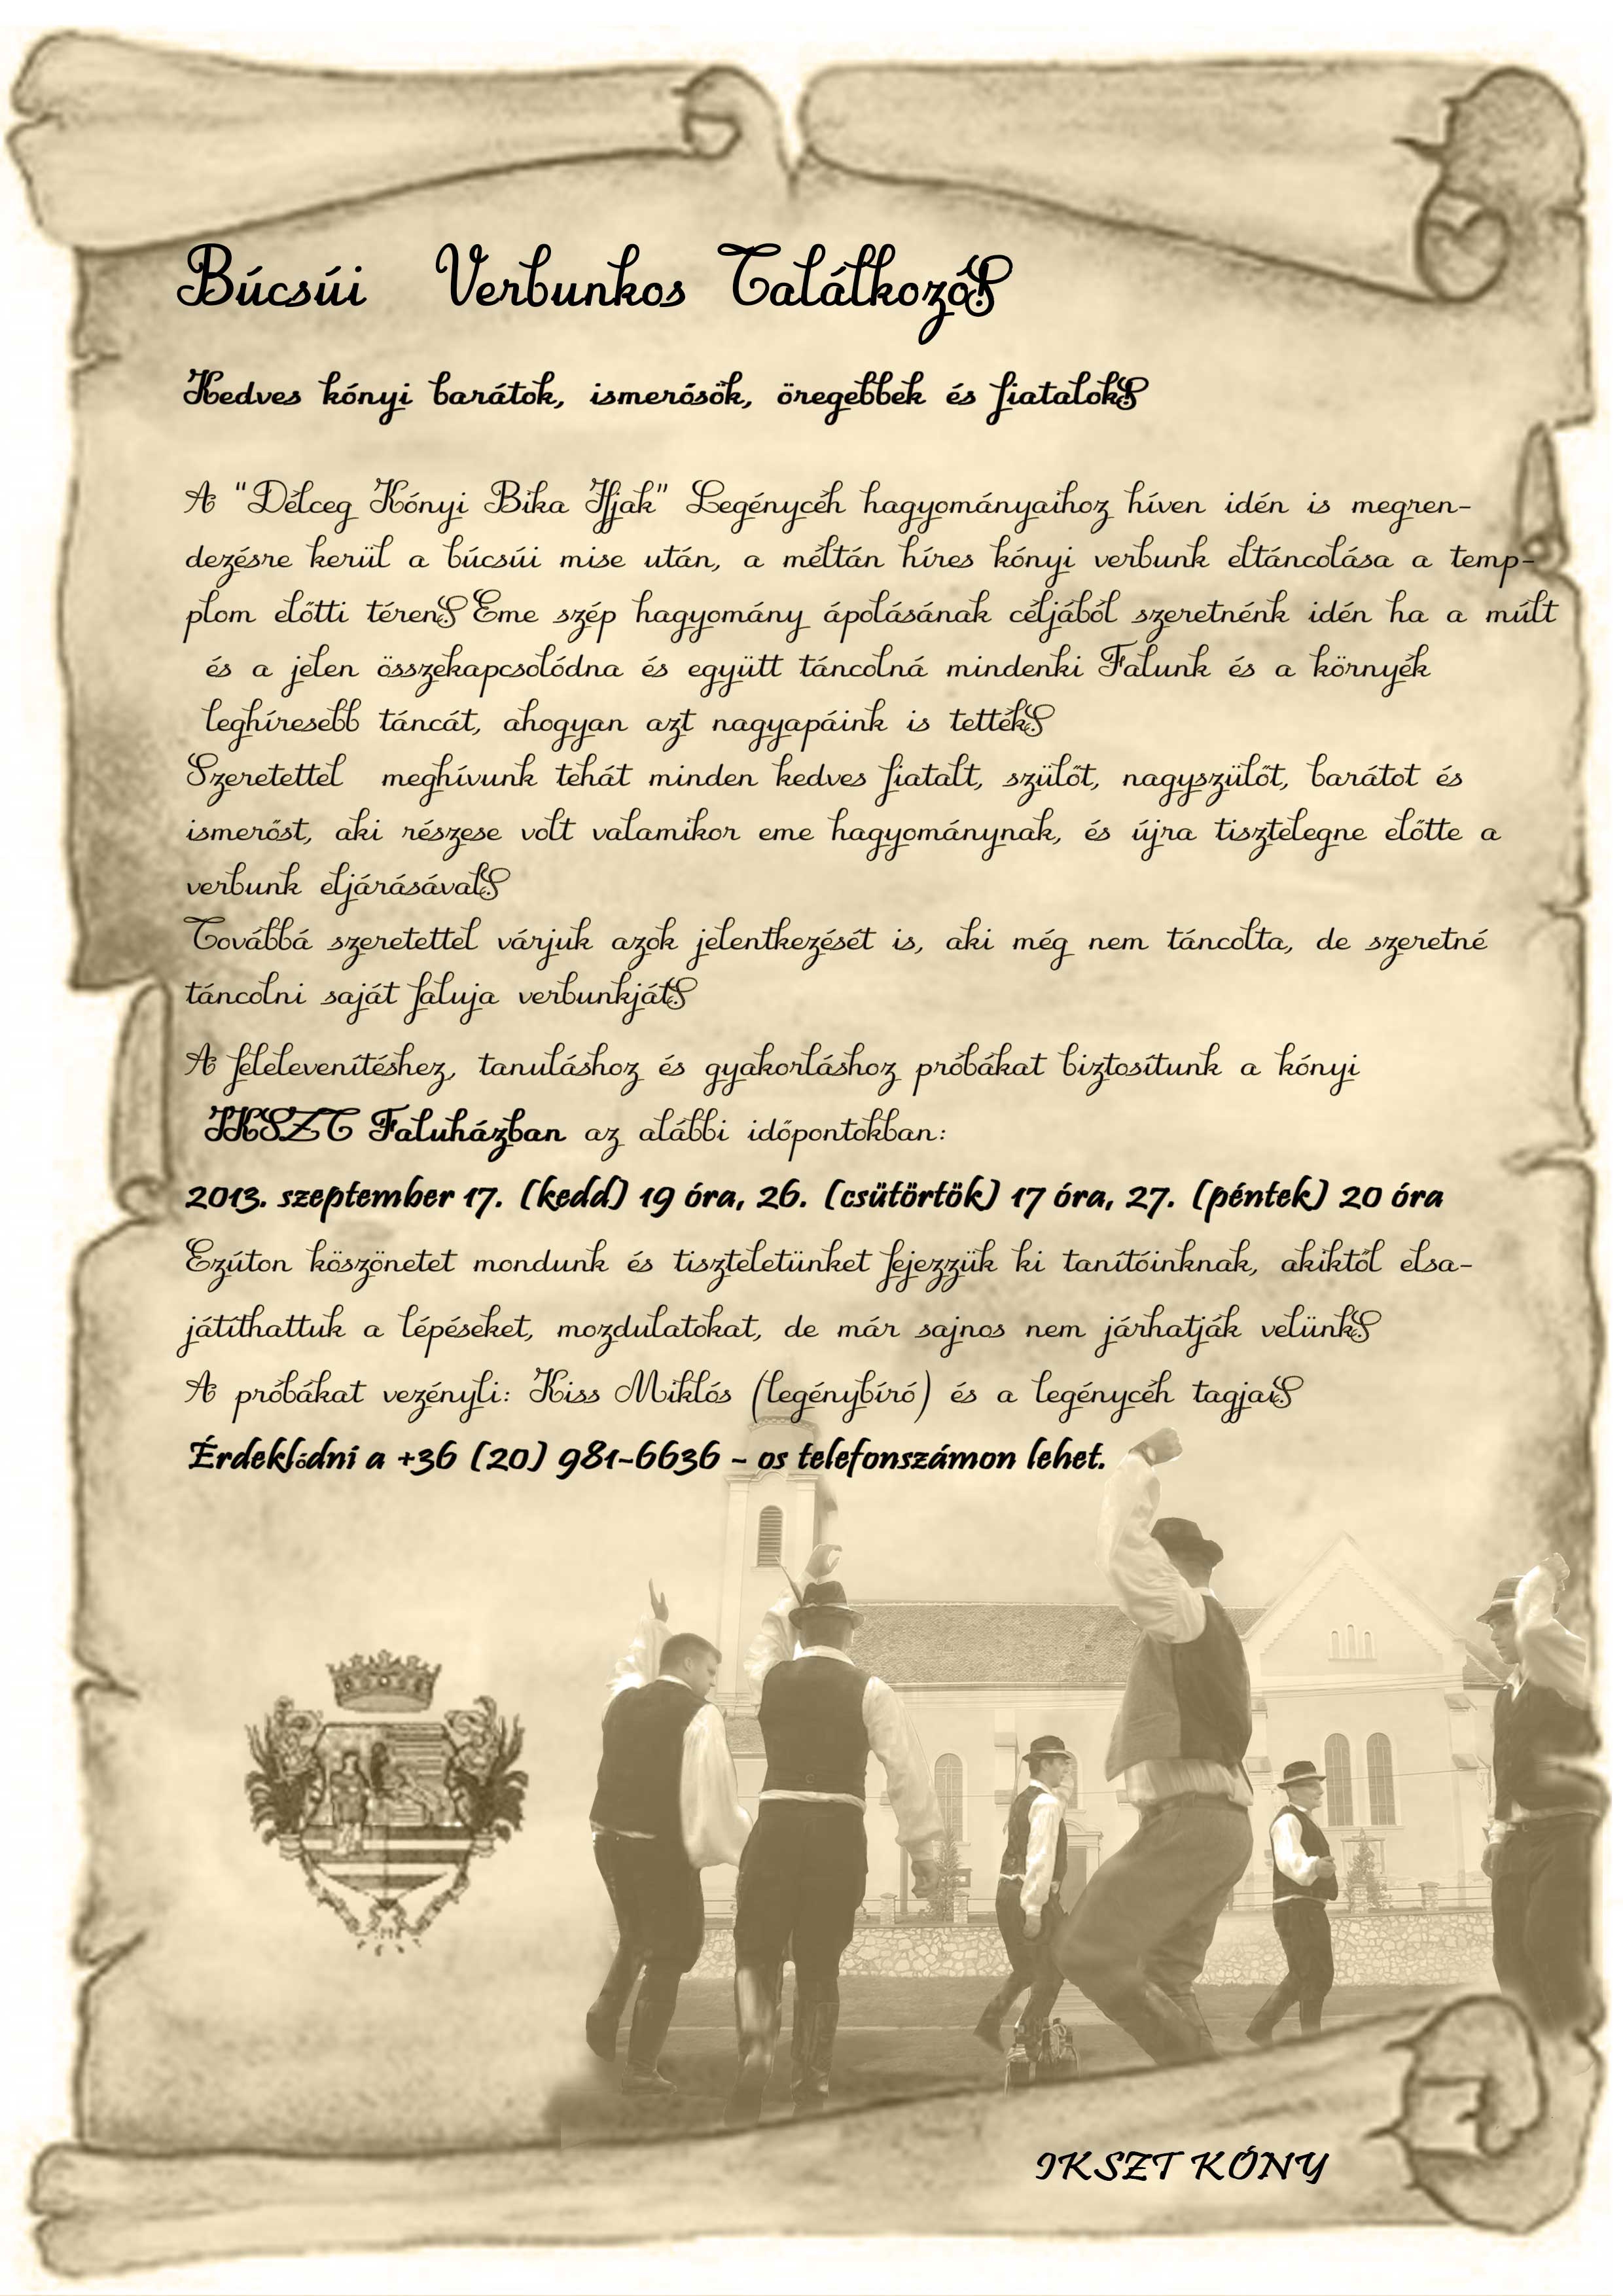 Búcsúi Verbunkos Találkozó!
Kedves kónyi barátok, ismerősök, öregebbek és fiatalok!
A "Délceg Kónyi Bika Ifjak" Legénycéh hagyományaihoz híven idén is megren-
dezésre kerül a búcsúi mise után, a méltán híres kónyi verbunk eltáncolása a temp-
plom előtti téren! Eme szép hagyomány ápolásának céljából szeretnénk idén ha a múlt
és a jelen összekapcsolódna és együtt táncolná mindenki Falunk és a környék
leghíresebb táncát, ahogyan azt nagyapáink is tették!
Szeretettel meghívunk tehát minden kedves fiatalt, szülőt, nagyszülőt, barátot és
ismerőst, aki részese volt valamikor eme hagyománynak, és újra tisztelegne előtte a
verbunk eljárásával!
Továbbá szeretettel várjuk azok jelentkezését is, aki még nem táncolta, de szeretné
táncolni saját faluja verbunkját!
A felelevenítéshez, tanuláshoz és gyakorláshoz próbákat biztosítunk a kónyi
IKSZT Faluházban az alábbi időpontokban:
2013. szeptember 17. (kedd) 19 óra, 26. (csütörtök) 17 óra, 27. (péntek) 20 óra
Ezúton köszönetet mondunk és tiszteletünket fejezzük ki tanítóinknak, akiktől elsa-
játíthattuk a lépéseket, mozdulatokat, de már sajnos nem járhatják velünk!
A próbákat vezényli: Kiss Miklós (legénybíró) és a legénycéh tagjai!
Érdeklődni a +36 (20) 981-6636 - os telefonszámon lehet.
IKSZT KÓNY